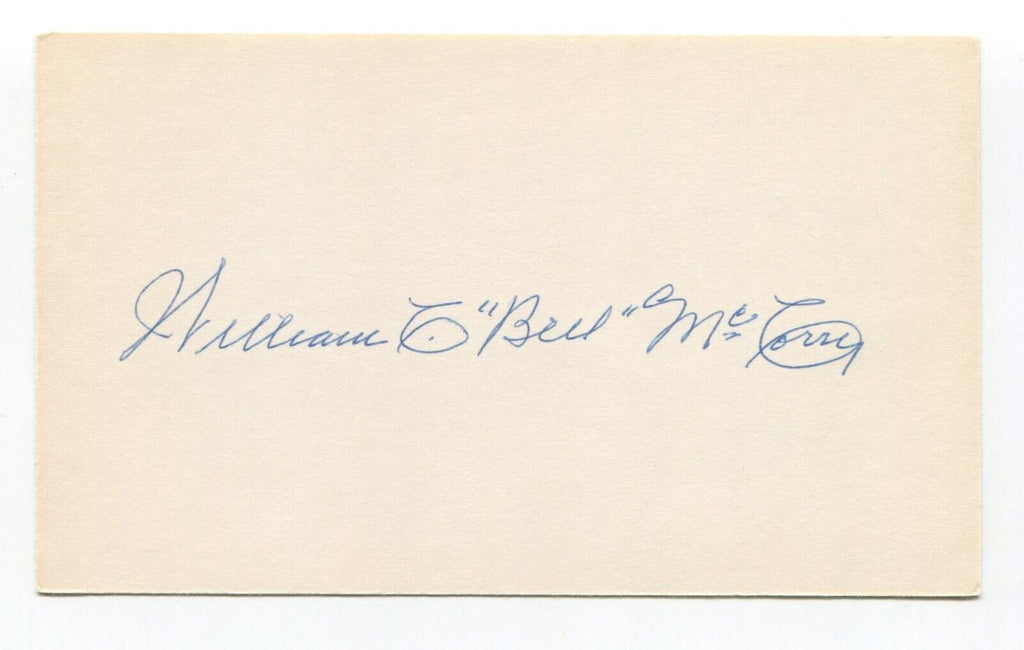 William C "Bill" McCorry